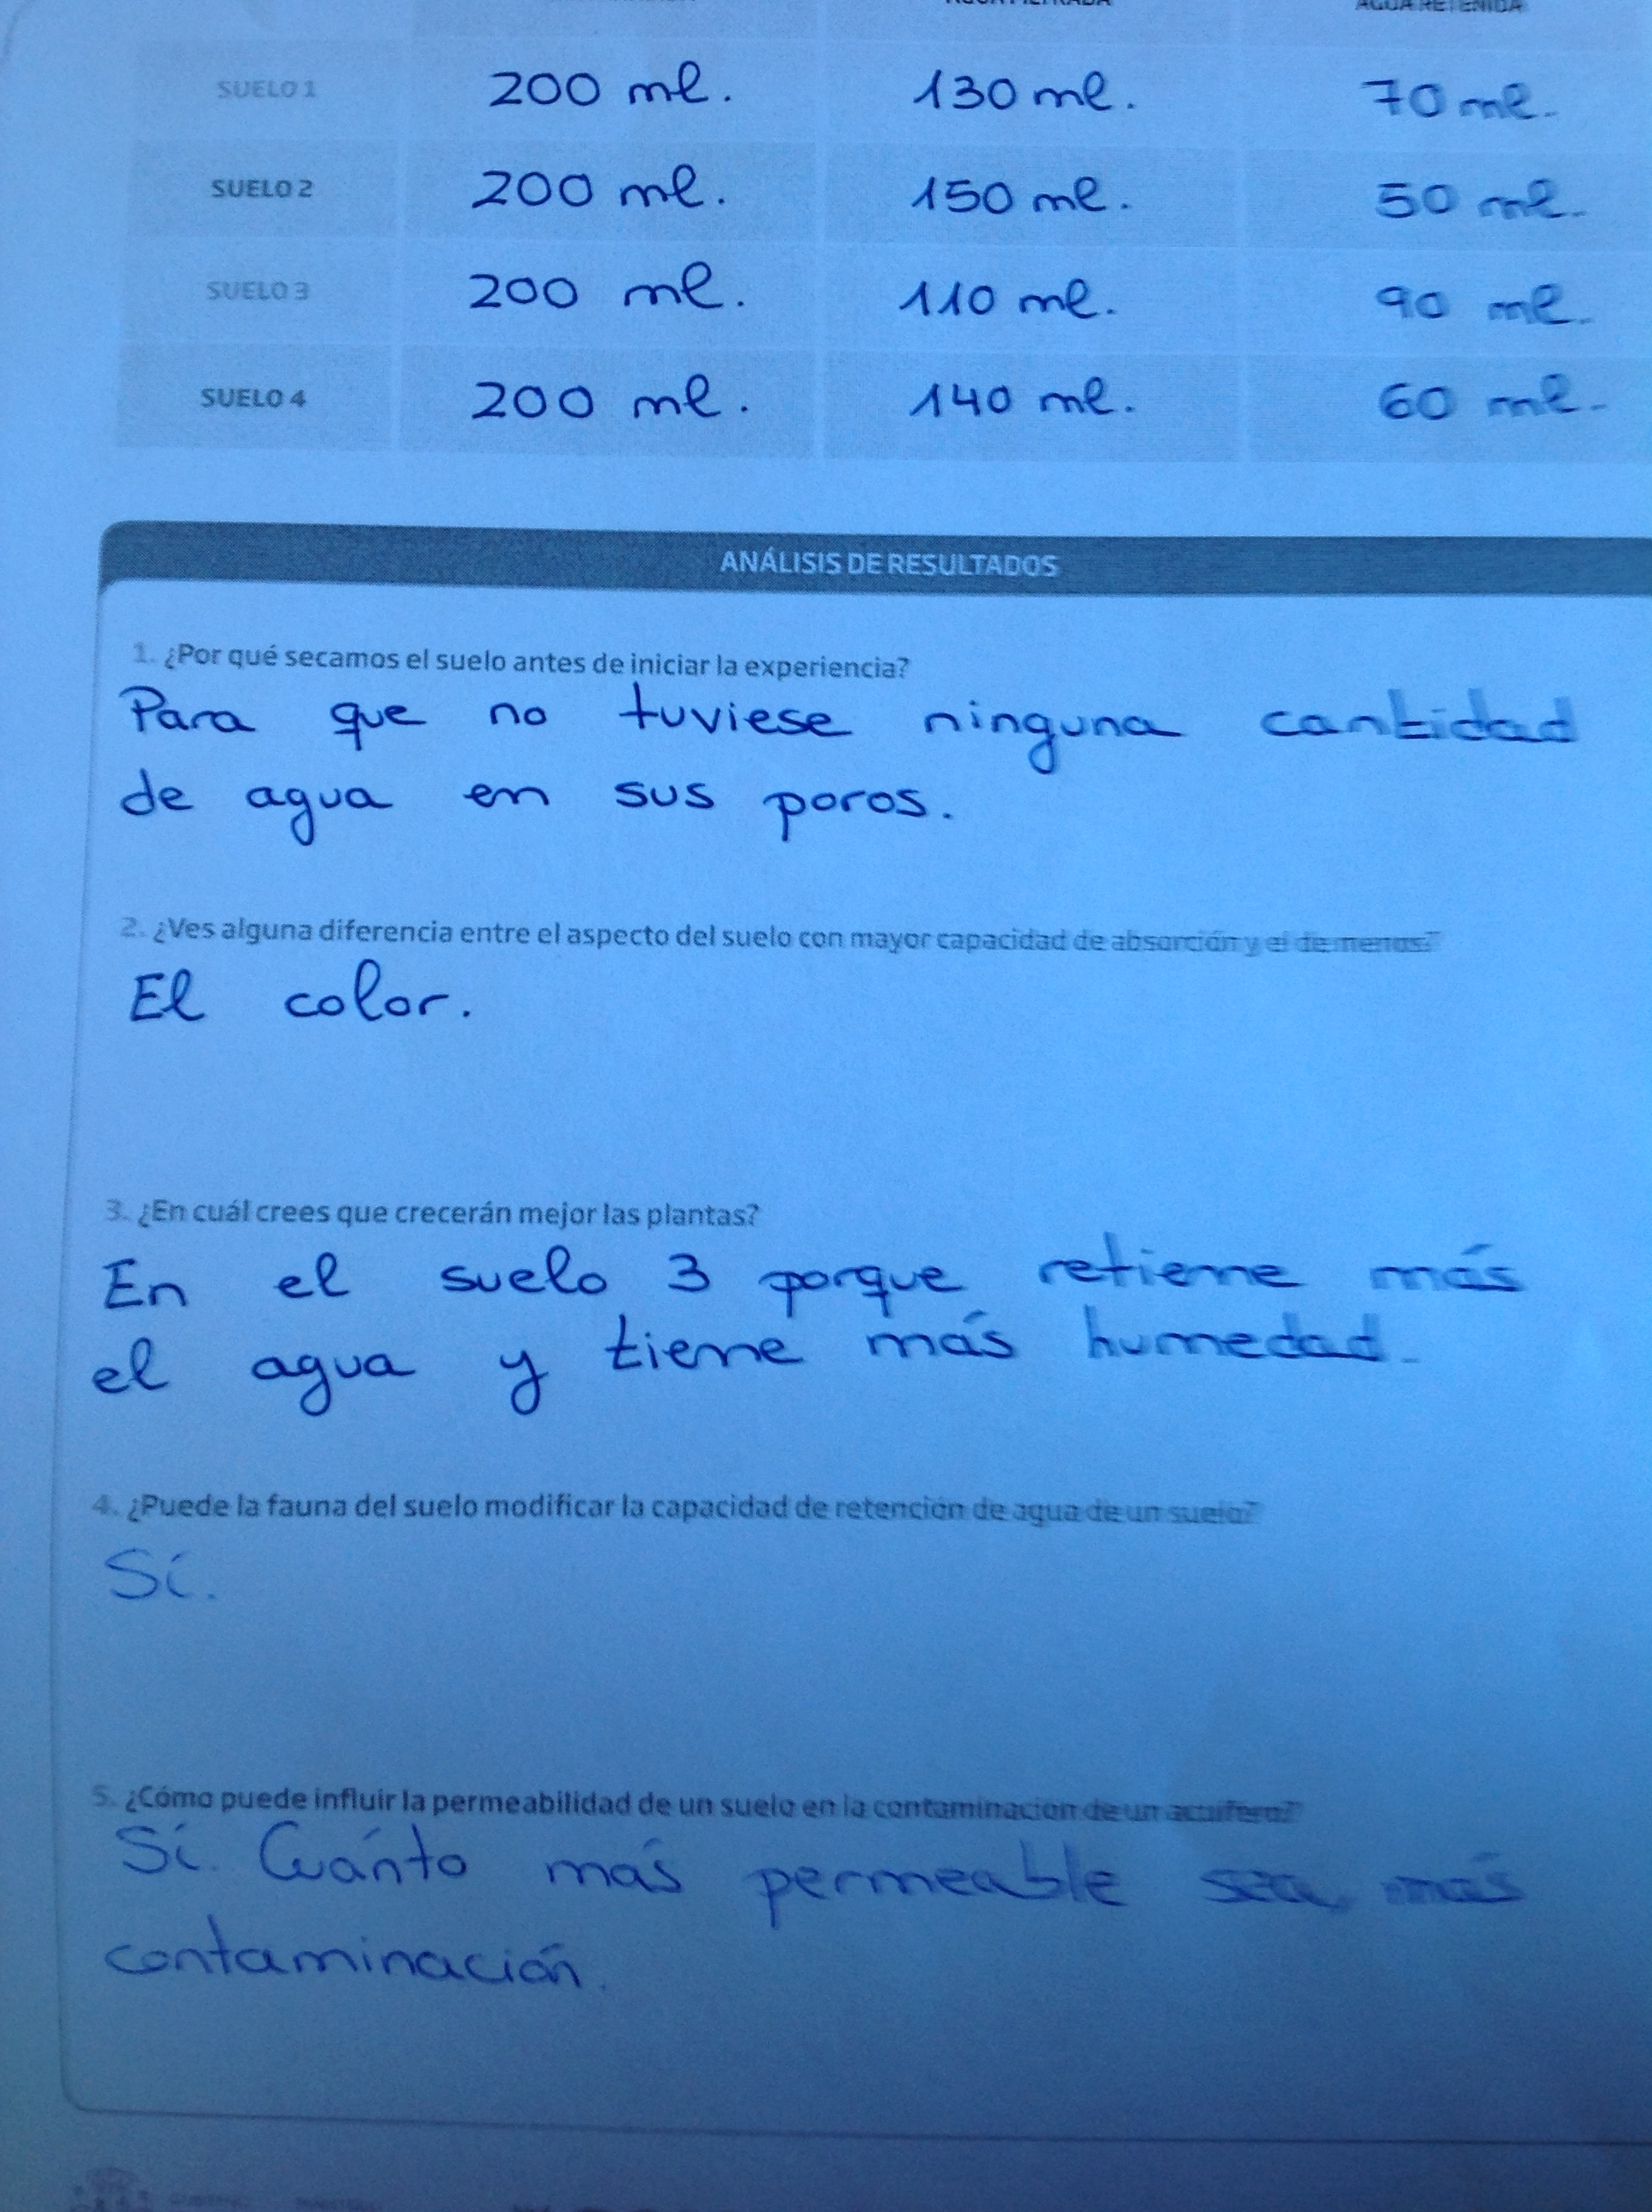 AGUA RETENIDA
SUELO 1 200 ml. 130 ml. 70 ml.
SUELO 2 200 ml. 150 ml. 50 ml.
SUELO 3 200 ml. 110 ml. 90 ml.
SUELO 4 200 ml. 140 ml. 60 ml.
ANÁLISIS DE RESULTADOS
1. ¿Por qué secamos el suelo antes de iniciar la experiencia?
Para que no tuviese ninguna cantidad
de agua en sus poros.
2. ¿Ves alguna diferencia entre el aspecto del suelo con mayor capacidad de absorción y el de menos?
El color.
3. ¿En cuál crees que crecerán mejor las plantas?
En el suelo 3 porque retiene más
el agua y tiene más humedad.
4. ¿Puede la fauna del suelo modificar la capacidad de retención de agua de un suelo?
Sí.
5. ¿Cómo puede influir la permeabilidad de un suelo en la contaminación de un acuífero?
Sí. Cuánto más permeable sea, más
contaminación.